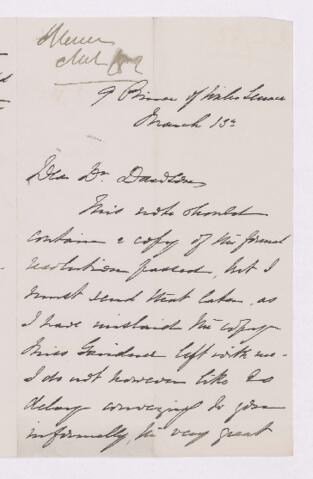 9 Prince of Wales Terrace
March 13th
Dear Dr. Davidson
This note should
contain a copy of the formal
resolution passed, but I
must send that later, as
I have mislaid the copy
Miss left with me -
I do not however like to
delay conveying to you
informally, the very great